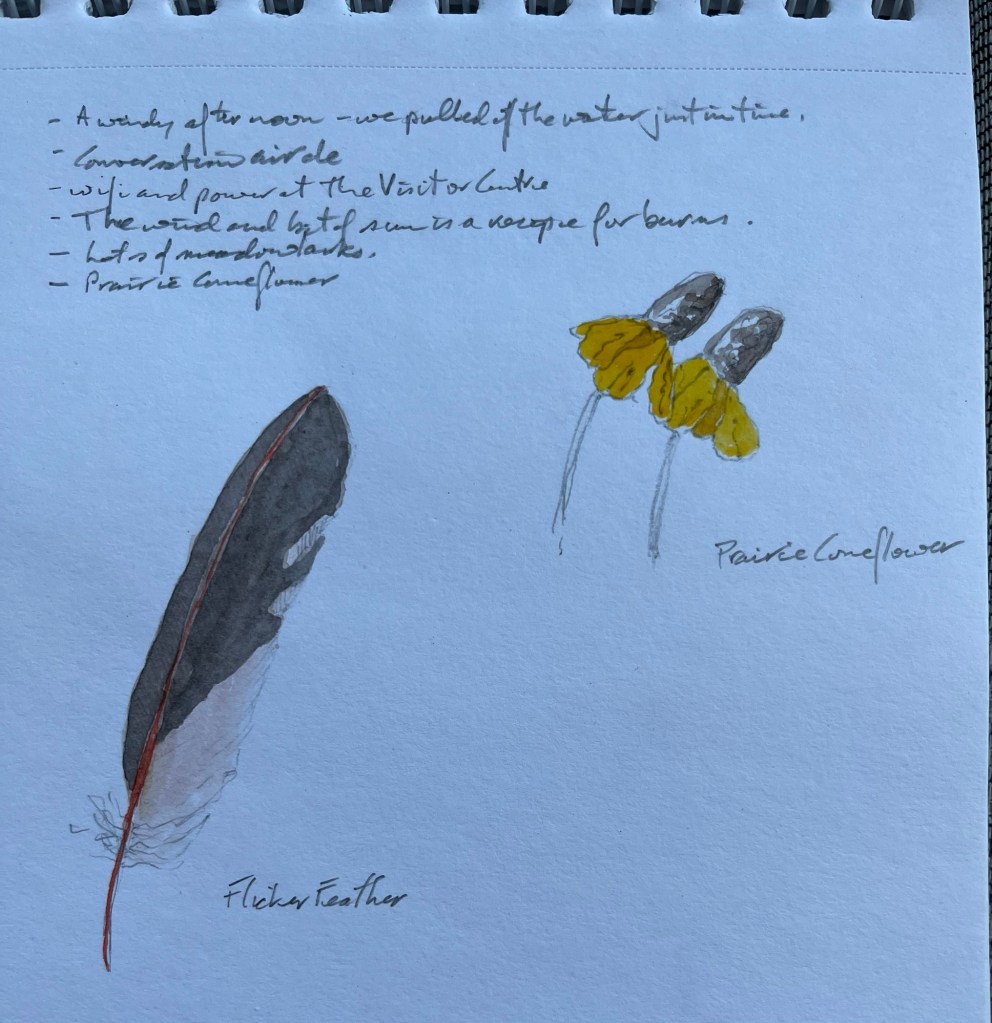 - A windy afternoon - we pulled off the water just in time.
- Conversation circle
- wifi and power at the Visitor Centre
- The wind and hot sun is a recipe for burns.
- Lots of meadowlarks.
- Prairie Coneflower
Prairie Coneflower
Flicker Feather